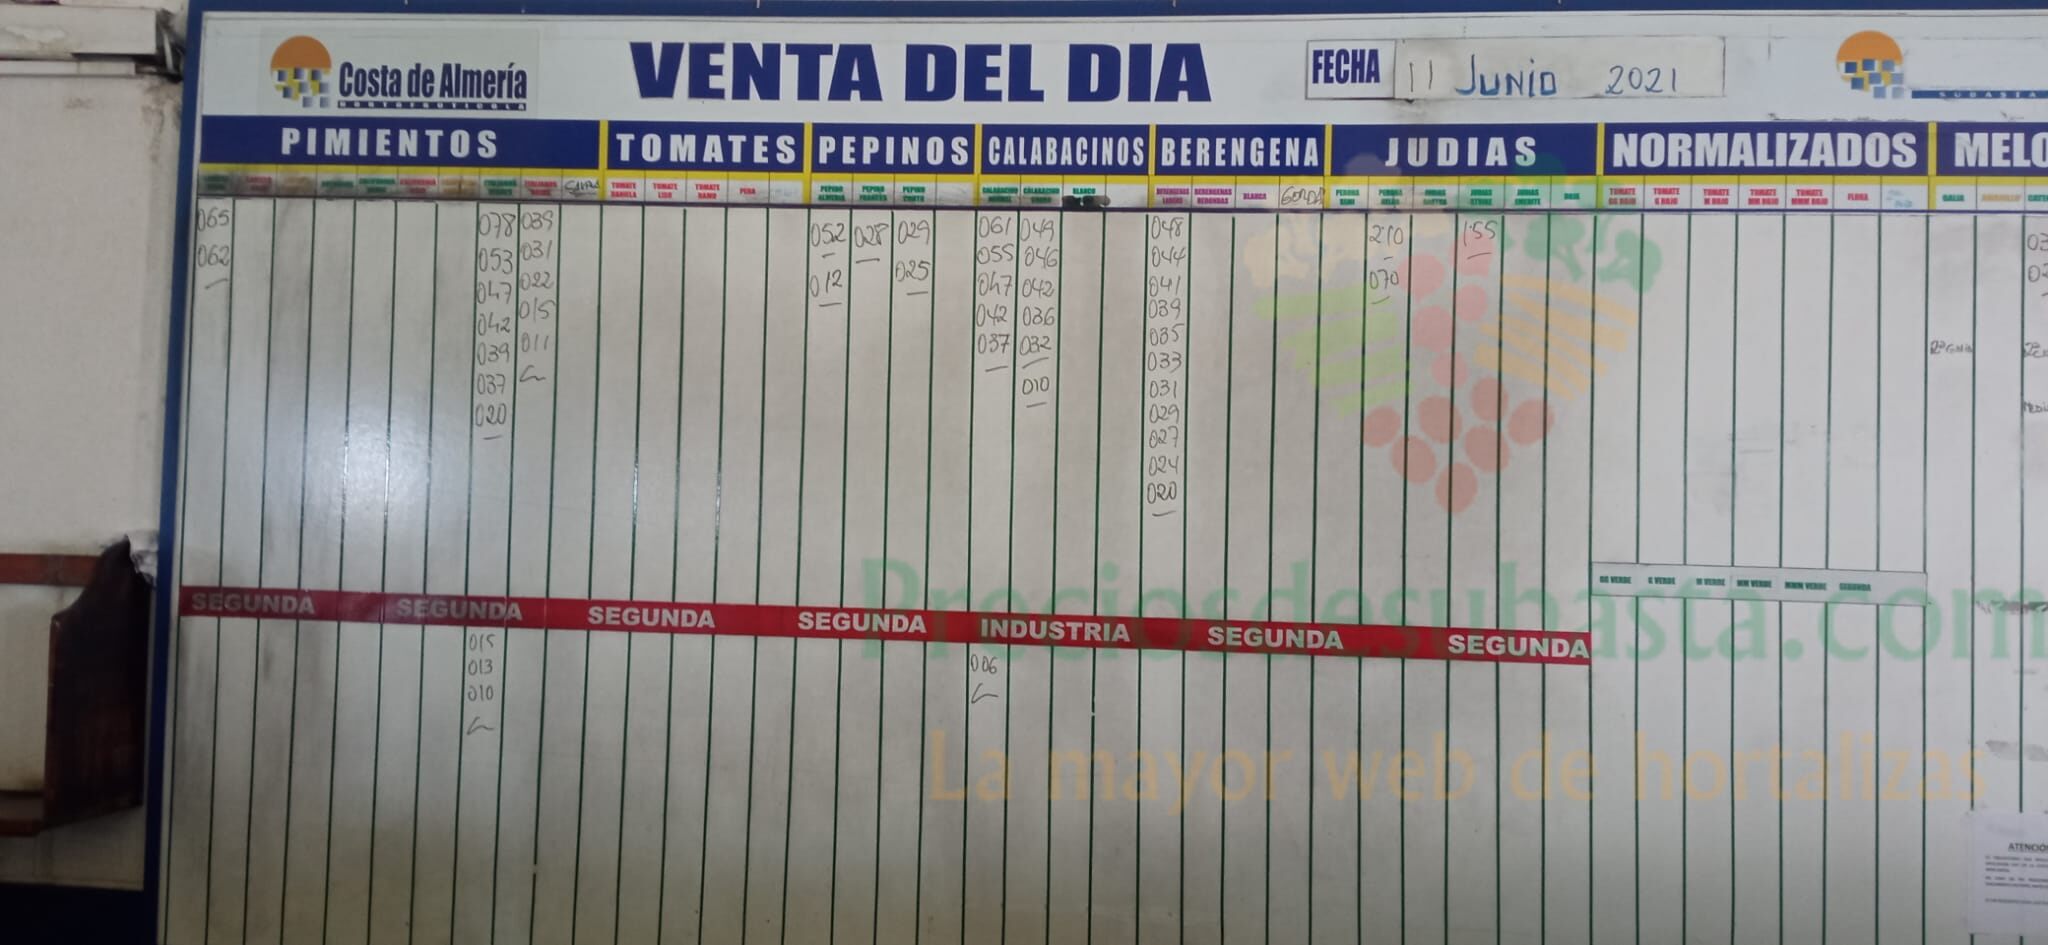 Costa de Almería
HORTOFRUTICOLA
VENTA DEL DIA
FECHA 11 JUNIO 2021
SUBASTA
PIMIENTOS TOMATES PEPINOS CALABACINOS BERENGENA JUDIAS NORMALIZADOS MELO
TOMATE DANIELA TOMATE LISO TOMATE RAMO PERA PEPINO ALMERIA PEPINO FRANCES PEPINO CORTO CALABACINO CALABACINO BLANCO BERENGENAS LARGAS BERENGENAS REDONDAS BLANCA GORDA PERONA JUDIAS JUDIAS STRIKE JUDIAS EMERITE ROJA TOMATE GG ROJO TOMATE G ROJO TOMATE M ROJO TOMATE MM ROJO TOMATE MMM ROJO FLORA GALIA AMARILLO
065 078 039 052 028 029 061 049 048 210 155
062 053 031 012 025 055 046 044 070
047 022 047 042 041
042 015 042 036 039
039 011 037 032 035
037 010 033
020 031
029
027
024
020
GG VERDE G VERDE M VERDE MM VERDE MMM VERDE SEGUNDA
SEGUNDA SEGUNDA SEGUNDA SEGUNDA INDUSTRIA SEGUNDA SEGUNDA
015 006
013
010
Preciosdesubasta.com
La mayor web de hortalizas
ATENCIÓ